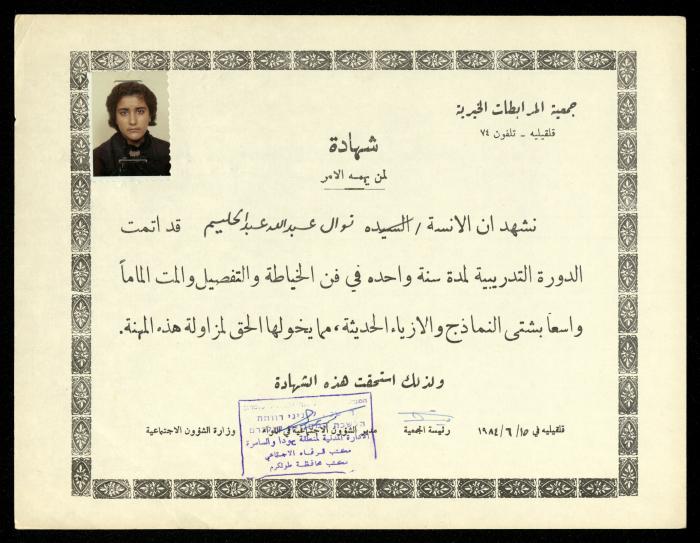 جمعية المرابطات الخيرية
قلقيليه - تلفون ٧٤
شهادة
لمن يهمه الامر
نشهد ان الانسة / السيده نوال عبدالله عبد الحليم قد اتمت
الدورة التدريبية لمدة سنة واحده في فن الخياطة والتفصيل والمت الماماً
واسعاً بشتى النماذج والازياء الحديثة، مما يخولها الحق لمزاولة هذه المهنة.
ولذلك استحقت هذه الشهادة
قلقيليه في ١٥ / ٦ / ١٩٨٤ رئيسة الجمعية مدير الشؤون الاجتماعية في اللواء وزارة الشؤون الاجتماعية
الادارة المدنية لمنطقة يهودا والسامرة
مكتب الرفاه الاجتماعي
مكتب محافظة طولكرم